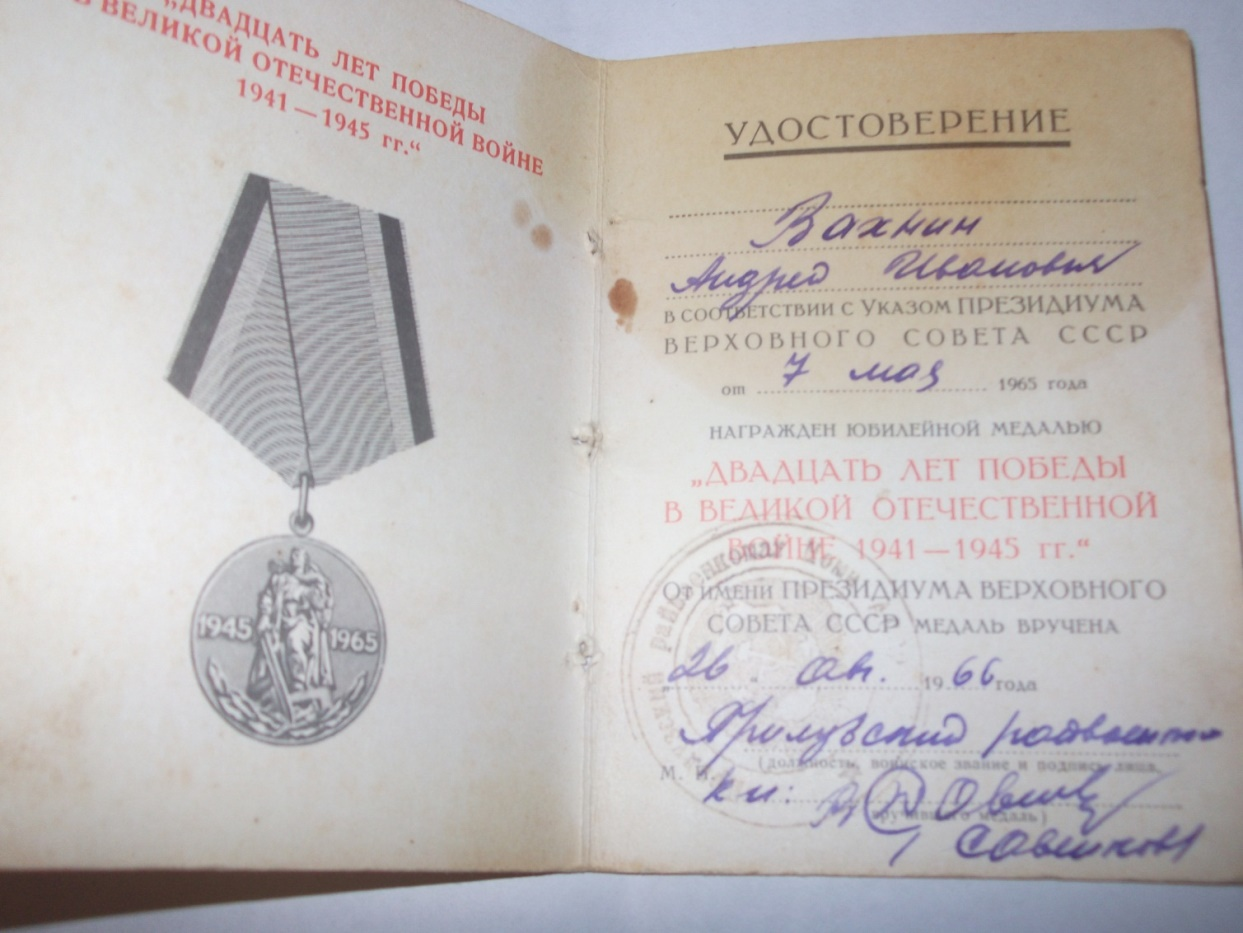 „ДВАДЦАТЬ ЛЕТ ПОБЕДЫ
В ВЕЛИКОЙ ОТЕЧЕСТВЕННОЙ ВОЙНЕ
1941—1945 гг.“
1945 1965
УДОСТОВЕРЕНИЕ
Вахнин
Андрей Иванович
В СООТВЕТСТВИИ С УКАЗОМ ПРЕЗИДИУМА
ВЕРХОВНОГО СОВЕТА СССР
от 7 мая 1965 года
НАГРАЖДЕН ЮБИЛЕЙНОЙ МЕДАЛЬЮ
„ДВАДЦАТЬ ЛЕТ ПОБЕДЫ
В ВЕЛИКОЙ ОТЕЧЕСТВЕННОЙ
ВОЙНЕ 1941—1945 гг.“
ОТ ИМЕНИ ПРЕЗИДИУМА ВЕРХОВНОГО
СОВЕТА СССР МЕДАЛЬ ВРУЧЕНА
„26 “ 1966 года
Прилузский
(должность, воинское звание и подпись лица,
М. П.
вручившего медаль)